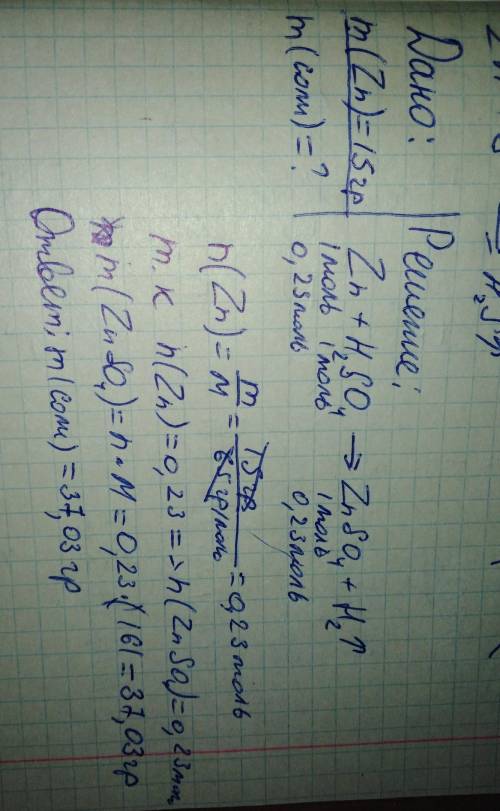 Дано:
Решение:
m(Zn)=15гр
m(соли)=?
Zn + H₂SO₄ → ZnSO₄ + H₂↑
1моль 1моль 1моль
0,23моль 0,23моль
n(Zn) = m/M = 15гр/65гр/моль = 0,23моль
т.к n(Zn)=0,23 => n(ZnSO₄)=0,23моль
m(ZnSO₄)=n·M=0,23·161=37,03гр
Ответ: m(соли)=37,03гр